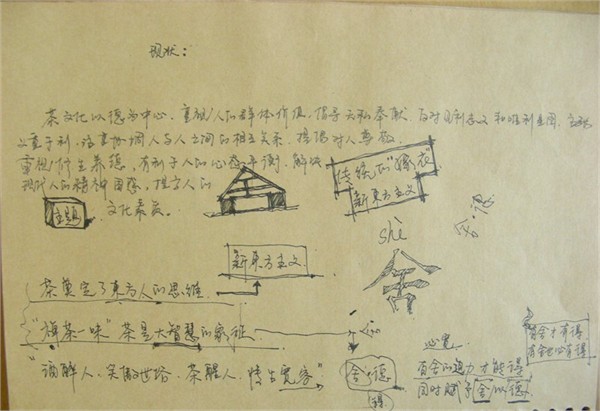 现状：
茶文化以德为中心，重视人的群体价值，倡导无私奉献，反对见利忘义和唯利是图，
义重于利，注重协调人与人之间的相互关系，提倡对人尊敬
重视修生养德，有利于人的心态平衡，解决
现代人的精神困惑，提高人的
文化素质。
主题
传统的"嫁衣
新东方主义
舍·得
shè
舍
新东方主义
茶奠定了东方人的思维
"旗茶一味"茶是大智慧的
"酒醉人，笑傲世俗，茶醒人，情古宽容"
舍 德
得
心宽
有舍的迫力才能得
同时赋予舍以德
有舍才有得
有舍必有得